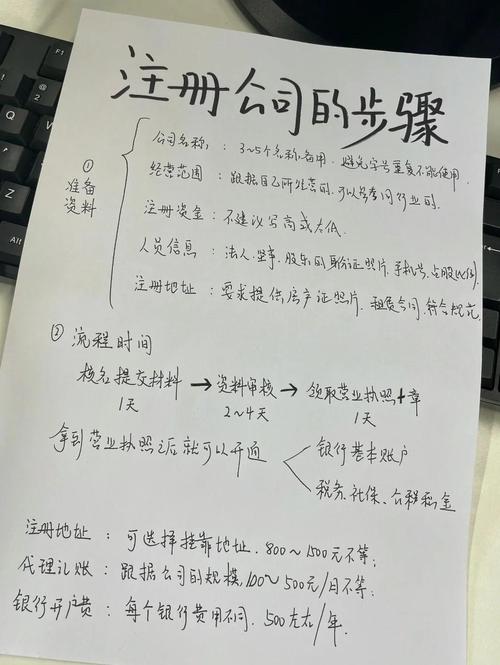 注册公司的步骤
① 准备资料
公司名称： 3~5个名称备用．避免字号重复不能使用．
经营范围： 跟据自己所经营的．可以参考同行业的．
注册资金： 不建议写高或太低
人员信息： 法人．监事．股东的身份证照片．手机号．占股
注册地址： 要求提供房产证照片．租赁合同．符合规范．
② 流程时间
核名提交材料 → 资料审核 → 领取营业执照+章
1天 2~4天 1天
拿到营业执照之后就可以开通
银行基本账户
税务、社保、公积金
注册地址： 可选择挂靠地址．800~1500元不等．
代理记账： 跟据公司的规模，100~500元/月不等．
银行开户费： 每个银行费用不同．500左右/年．